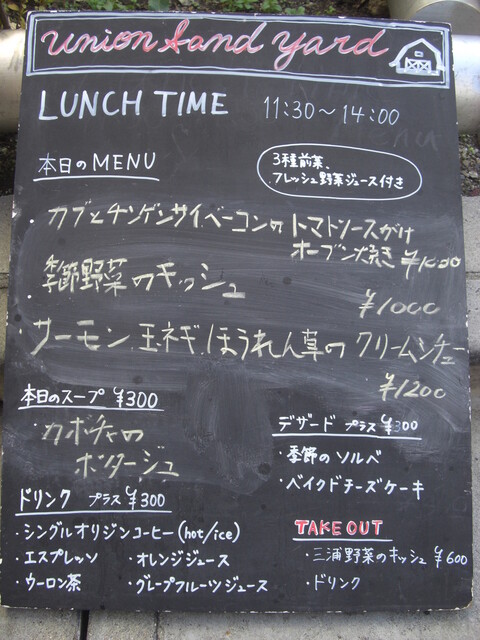 union sand yard
LUNCH TIME 11:30～14:00
本日のMENU
3種前菜、
フレッシュ野菜ジュース付き
・カブとチンゲンサイ、ベーコンの トマトソースがけ
オーブン焼き ¥1000
・季節野菜のキッシュ
¥1000
・サーモン、玉ネギ、ほうれん草の クリームシチュー
¥1200
本日のスープ ¥300
・カボチャの
ポタージュ
デザード プラス ¥300
・季節のソルベ
・ベイクドチーズケーキ
ドリンク プラス ¥300
・シングルオリジンコーヒー(hot/ice)
・エスプレッソ ・オレンジジュース
・ウーロン茶 ・グレープフルーツジュース
TAKE OUT
・三浦野菜のキッシュ ¥600
・ドリンク